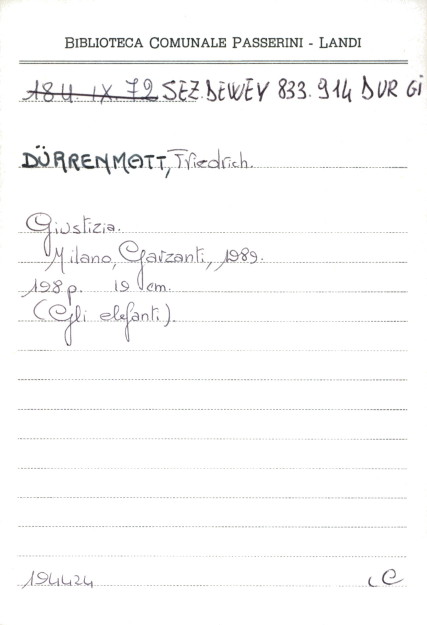 BIBLIOTECA COMUNALE PASSERINI - LANDI
184 IX. 72 SEZ. DEWEY 833.914 DUR GI
DÜRRENMATT, Friedrich.
Giustizia.
Milano, Garzanti, 1989.
198 p. 19 cm.
(Gli elefanti).
194424
C